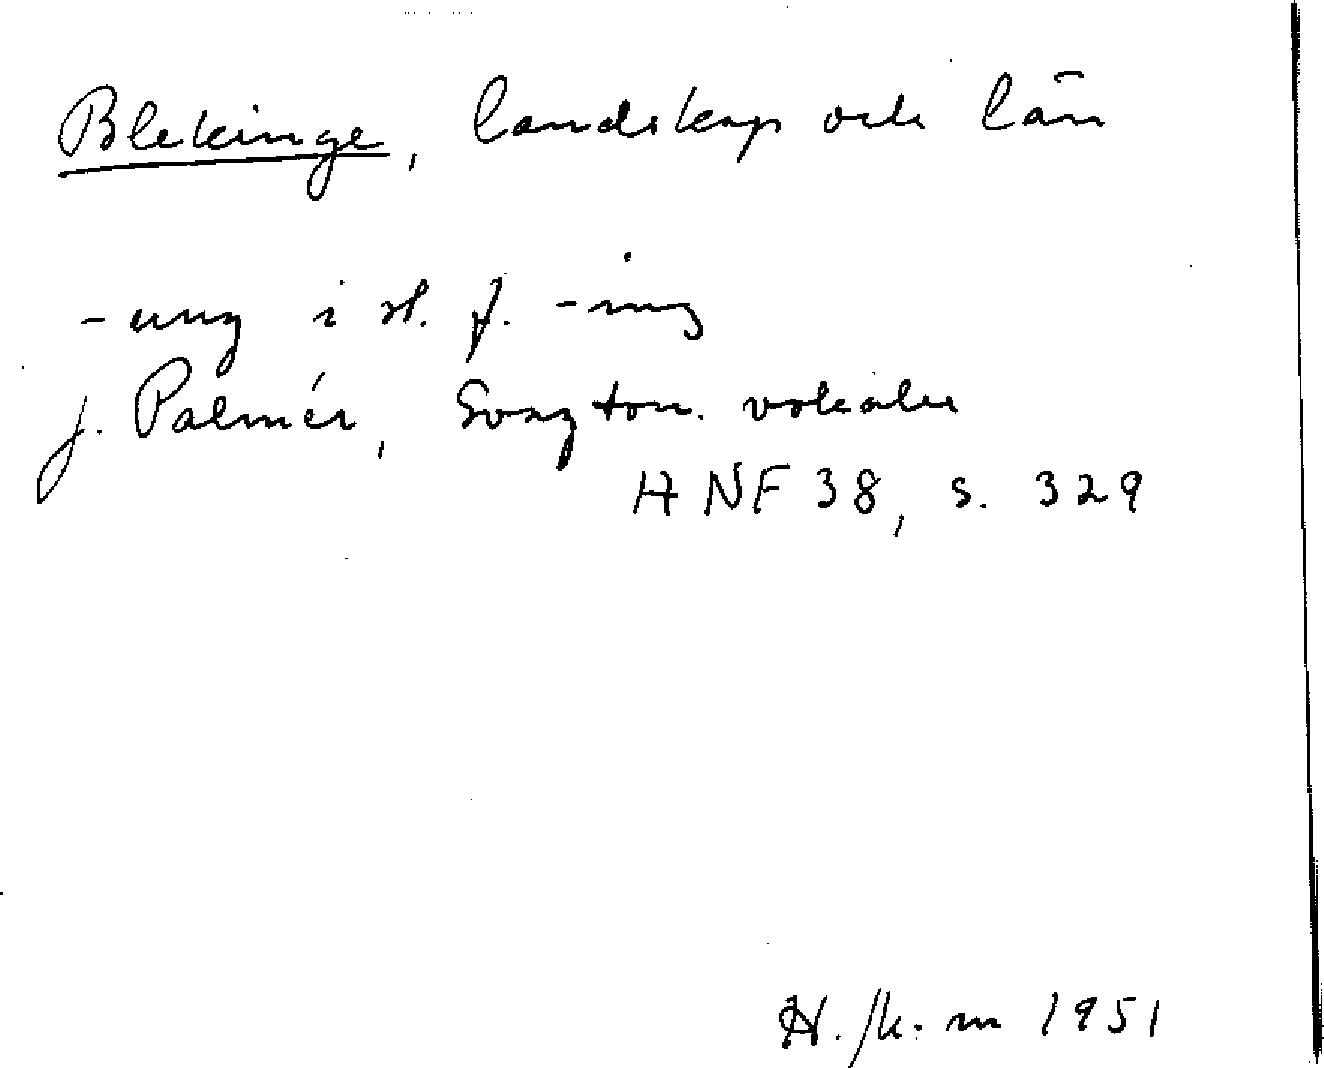 Blekinge, landskap och län
-ung i st. f. -ing
J. Palmér, Svagton. vokaler
HNF 38, s. 329
1951